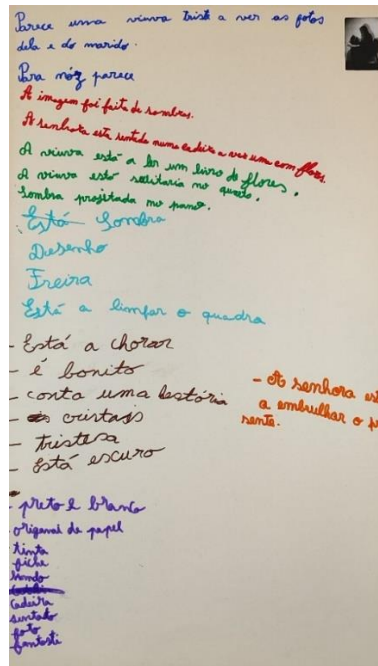 Parece uma viuva triste a ver as fotos
dela e do marido.
Para nóz parece
A imagem foi feita de sombras.
A senhora esta sentada numa cadeira a ver uma com flores.
A viuva está a ler um livro de flores.
A viuva está solitaria no quarto.
Sombra projetada no pano.
Está Sombra
Desenho
Freira
Está a limpar o quadra
- Está a chorar
- é bonito
- conta uma históri­a
- cristais
- tristesa
- Está escuro
- A senhora es
a embrulhar o p
sente.
- preto e branco
- origenal de papel
tinta
fiche
lindo
Cadeira
sentado
foto
fantasti